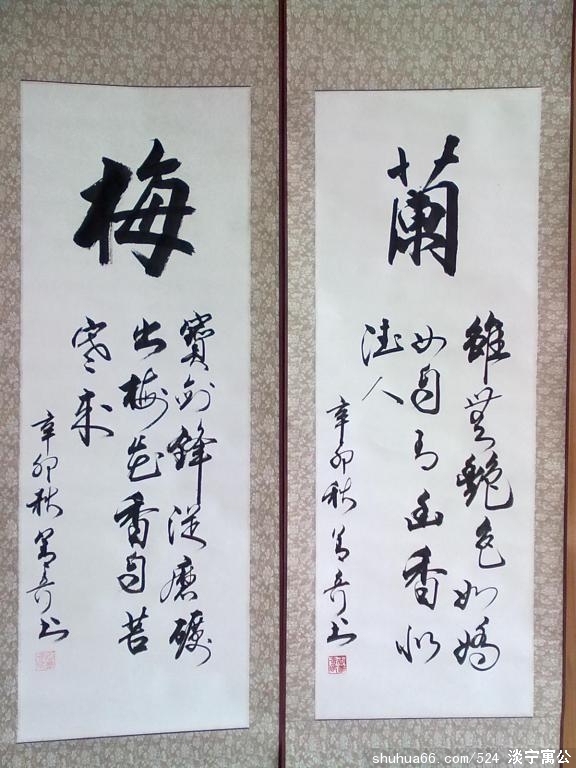 梅
寶劍鋒從磨礪
出梅花香自苦
寒來
辛卯秋 奇书
蘭
雖無艷色如嬌
女自有幽香似
德人
辛卯秋 奇书
shuhua66.com/524 淡宁寓公